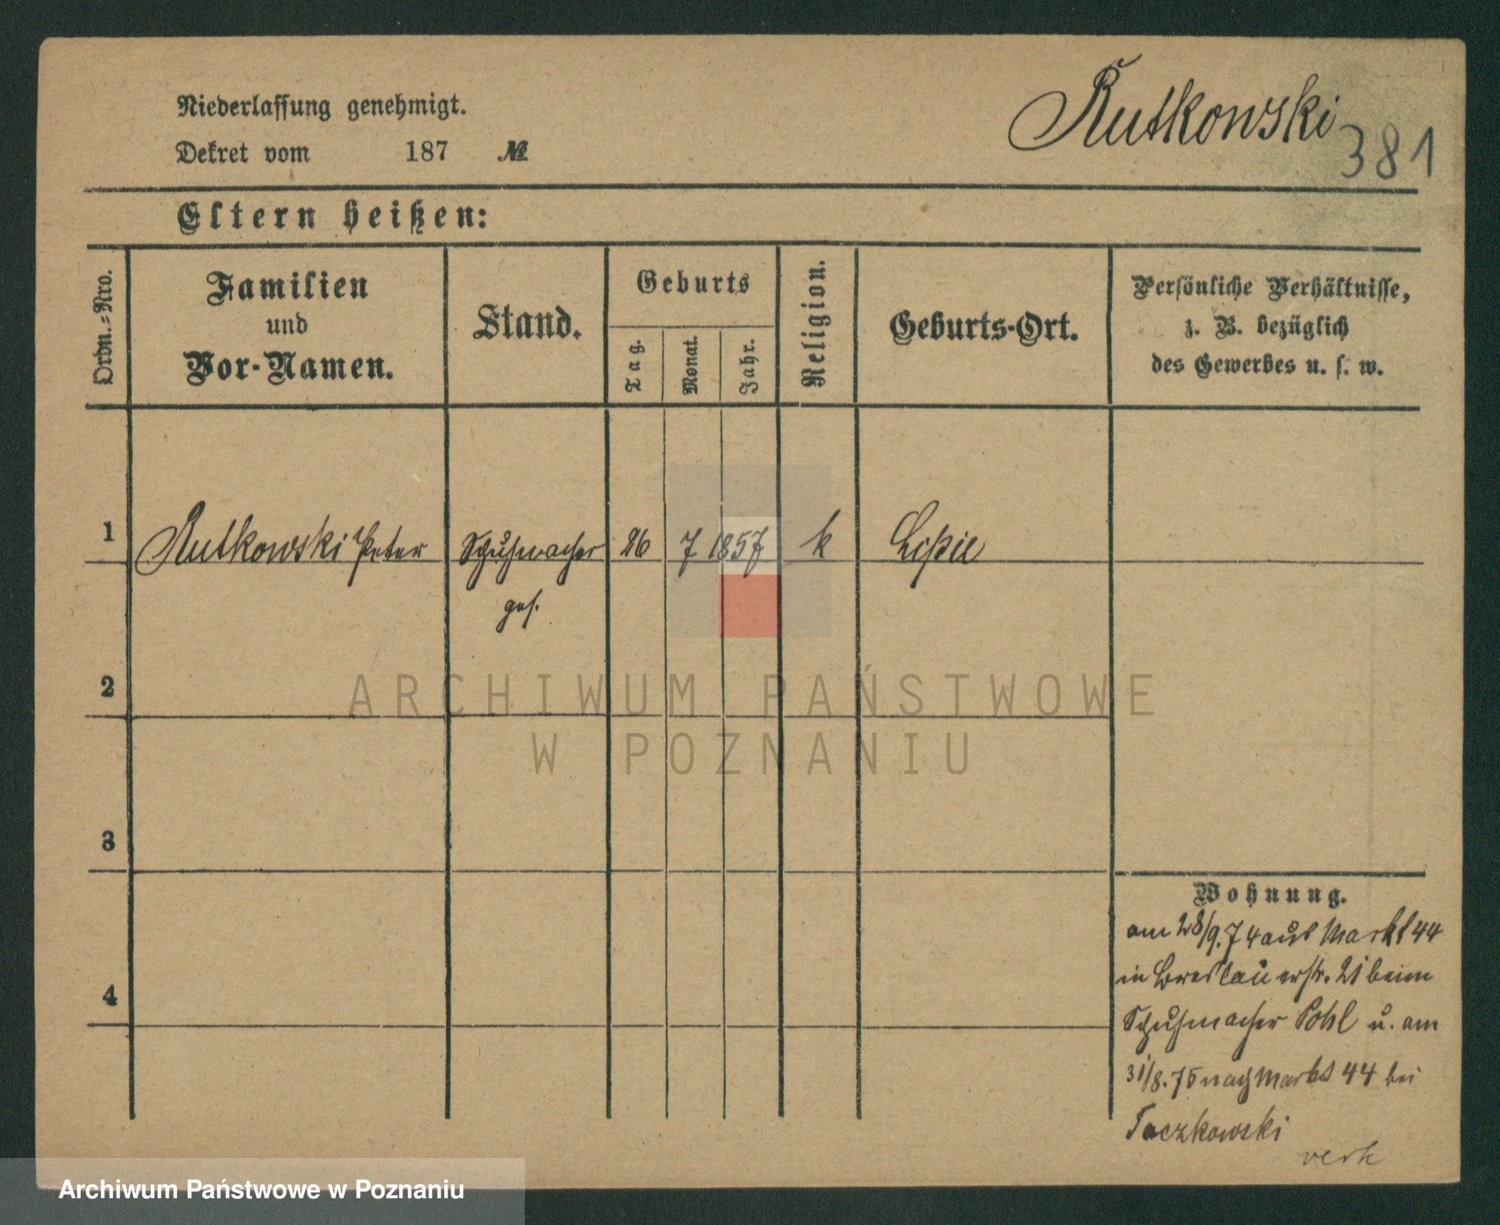 Rutkowski
381
Niederlassung genehmigt.
Dekret vom 187 №
Eltern heißen:
Ordn.-Nro.
Familien
und
Vor-Namen.
Stand.
Geburts
Tag.
Monat.
Jahr.
Religion.
Geburts-Ort.
Persönliche Verhältnisse,
z. B. bezüglich
des Gewerbes u. s. w.
1 Rutkowski Peter Schuhmacher 26 7 1857 k
ges.
2
3
4
Wohnung.
am 28/9.74 aus Markt 44
in Breslauerstr. 21 beim
Schuhmacher Pohl u. am
31/8.75 nach Markt 44 bei
Taczkowski
ARCHIWUM PAŃSTWOWE
W POZNANIU
Archiwum Państwowe w Poznaniu